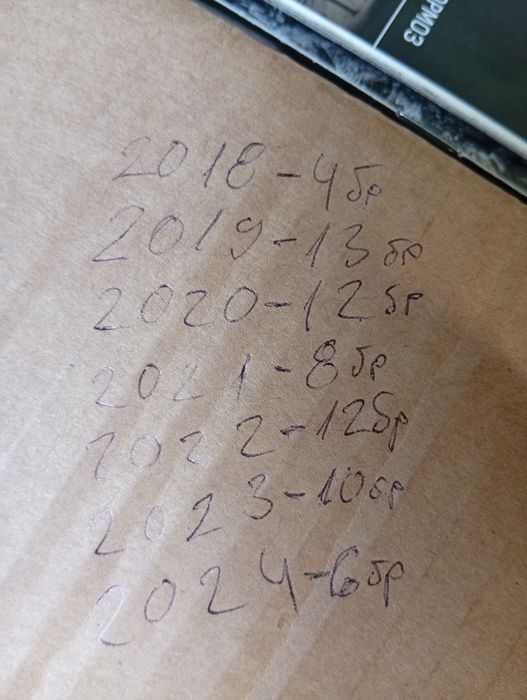 ОРМОЗ
2018-4бр
2019-13бр
2020-12бр
2021-8бр
2022-12бр
2023-10бр
2024-6бр